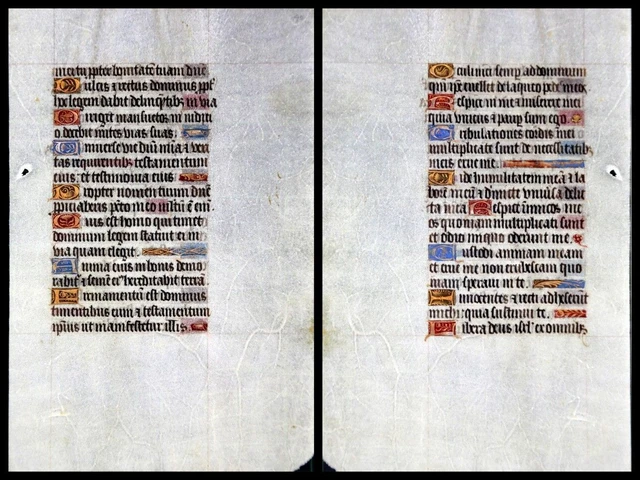 mei tu ppter bonitatē tuam dñe
Dulcis et rectus dominus ppt̄
hoc legem dabit delinq̄ntibꝫ in via
Diriget mansuetos in iuditi
o docebit mites vias suas.
Vniverse vie dñi mīa et veri
tas requirentibꝫ testamentum
eius et testimonia eius.
Propter nomen tuum dñe
ppiciaberis pctō meo multū ē em̄.
Quis est homo qui timet
dominum legem statuit ei in
via quam elegit.
Anima eius in bonis demo
rabit̄ et semē eiꝰ hereditabit terrā.
Firmamentū est dominus
timentibus eum et testamentum
ipsius ut manifestetur illis.
Oculi mei semp ad dominum
qm̄ ip̄e evellet de laqueo pedes meos.
Respice in me et miserere mei
quia unicus et paup sum ego.
Tribulationes cordis mei
multiplicate sunt de necessitatibꝫ
meis erue me.
Vide humilitatem meā et la
borē meū et dimitte universa delic
ta mea. Respice inimicos me
os quoniam multiplicati sunt
et odio iniquo oderunt me.
Custodi animam meam
et erue me non erubescam quo
niam speravi in te.
Innocentes et recti adheserūt
michi quia sustinui te.
Libera deus isrl̄ ex omnibꝫ